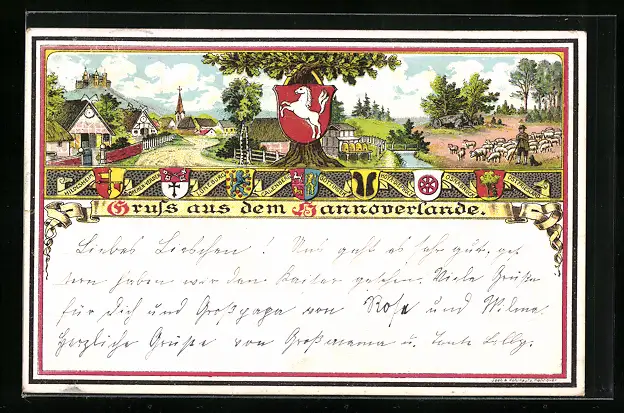 Gruss aus dem Hannoverlande.
Liebes Lieschen! Uns geht es sehr gut. ges
tern haben wir den Kaiser gesehen. Viele Grüße
für dich und Großpapa von Rosa und Wilma.
Herzliche Grüße von Großmama u. Tante Lolly.